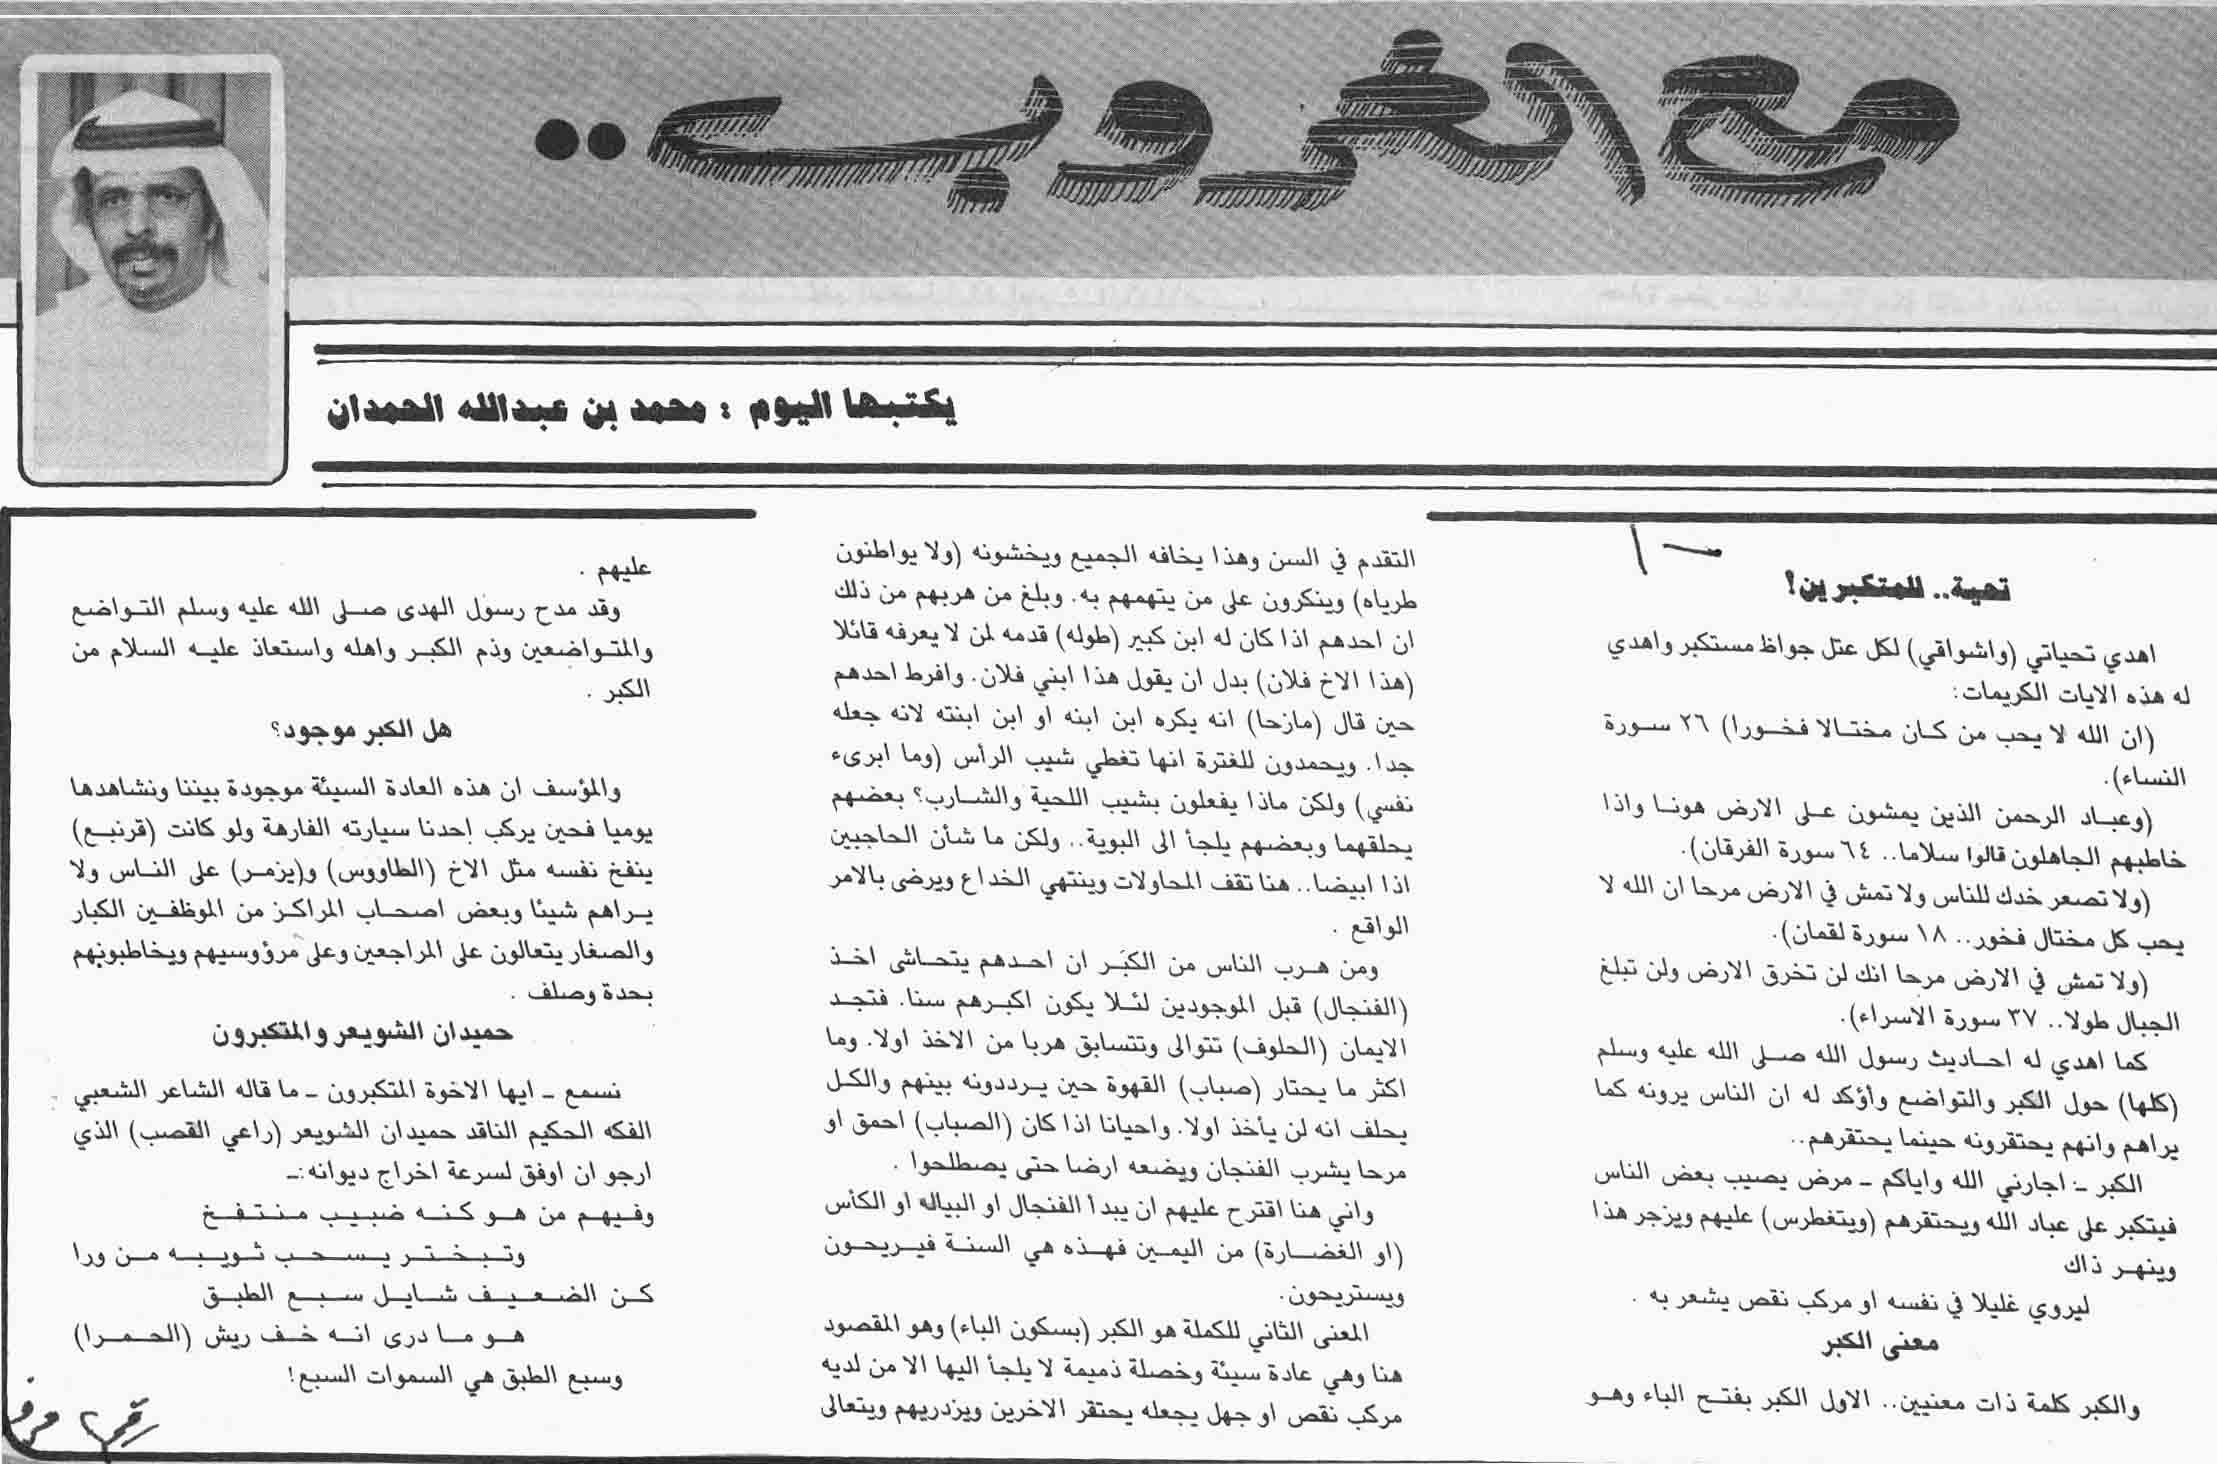 مع الغروب..
يكتبها اليوم : محمد بن عبدالله الحمدان
تحية.. للمتكبرين؟
اهدي تحياتي (واشواقي) لكل عتل جواظ مستكبر واهدي
له هذه الايات الكريمات:
(ان الله لا يحب من كان مختالا فخورا) ٢٦ سورة
النساء).
(وعباد الرحمن الذين يمشون على الارض هونا واذا
خاطبهم الجاهلون قالوا سلاما.. ٦٤ سورة الفرقان).
(ولا تصعر خدك للناس ولا تمش في الارض مرحا ان الله لا
يحب كل مختال فخور.. ١٨ سورة لقمان).
(ولا تمش في الارض مرحا انك لن تخرق الارض ولن تبلغ
الجبال طولا.. ٣٧ سورة الاسراء).
كما اهدي له احاديث رسول الله صلى الله عليه وسلم
(كلها) حول الكبر والتواضع وأؤكد له ان الناس يرونه كما
يراهم وانهم يحتقرونه حينما يحتقرهم..
الكبر ـ اجارني الله واياكم ـ مرض يصيب بعض الناس
فيتكبر على عباد الله ويحتقرهم (ويتغطرس) عليهم ويزجر هذا
وينهر ذاك
ليروي غليلا في نفسه او مركب نقص يشعر به .
معنى الكبر
والكبر كلمة ذات معنيين.. الاول الكبر بفتح الباء وهو
التقدم في السن وهذا يخافه الجميع ويخشونه (ولا يواطنون
طرياه) وينكرون على من يتهمهم به. وبلغ من هربهم من ذلك
ان احدهم اذا كان له ابن كبير (طوله) قدمه لمن لا يعرفه قائلا
(هذا الاخ فلان) بدل ان يقول هذا ابني فلان. وافرط احدهم
حين قال (مازحا) انه يكره ابن ابنه او ابن ابنته لانه جعله
جدا. ويحمدون للغترة انها تغطي شيب الرأس (وما ابرىء
نفسي) ولكن ماذا يفعلون بشيب اللحية والشارب؟ بعضهم
يحلقهما وبعضهم يلجأ الى البوية.. ولكن ما شأن الحاجبين
اذا ابيضا.. هنا تقف المحاولات وينتهي الخداع ويرضى بالامر
الواقع .
ومن هرب الناس من الكبَر ان احدهم يتحاشى اخذ
(الفنجال) قبل الموجودين لئلا يكون اكبرهم سنا. فتجد
الايمان (الحلوف) تتوالى وتتسابق هربا من الاخذ اولا. وما
اكثر ما يحتار (صباب) القهوة حين يرددونه بينهم والكل
يحلف انه لن يأخذ اولا. واحيانا اذا كان (الصباب) احمق او
مرحا يشرب الفنجان ويضعه ارضا حتى يصطلحوا .
واني هنا اقترح عليهم ان يبدأ الفنجال او البياله او الكأس
(او الغضارة) من اليمين فهذه هي السنة فيريحون
ويستريحون.
المعنى الثاني للكملة هو الكبر (بسكون الباء) وهو المقصود
هنا وهي عادة سيئة وخصلة ذميمة لا يلجأ اليها الا من لديه
مركب نقص او جهل يجعله يحتقر الاخرين ويزدريهم ويتعالى
عليهم .
وقد مدح رسول الهدى صلى الله عليه وسلم التواضع
والمتواضعين وذم الكبر واهله واستعاذ عليه السلام من
الكبر .
هل الكبر موجود؟
والمؤسف ان هذه العادة السيئة موجودة بيننا ونشاهدها
يوميا فحين يركب إحدنا سيارته الفارهة ولو كانت (قرنبع)
ينفخ نفسه مثل الاخ (الطاووس) و(يزمر) على الناس ولا
يراهم شيئا وبعض اصحاب المراكز من الموظفين الكبار
والصغار يتعالون على المراجعين وعلى مرؤوسيهم ويخاطبونهم
بحدة وصلف .
حميدان الشويعر والمتكبرون
نسمع ـ ايها الاخوة المتكبرون ـ ما قاله الشاعر الشعبي
الفكه الحكيم الناقد حميدان الشويعر (راعي القصب) الذي
ارجو ان اوفق لسرعة اخراج ديوانه:ـ
وفيهم من هو كنه ضبيب منتفخ
وتبختر يسحب ثويبه من ورا
كن الضعيف شايل سبع الطبق
هو ما درى انه خف ريش (الحمرا)
وسبع الطبق هي السموات السبع!